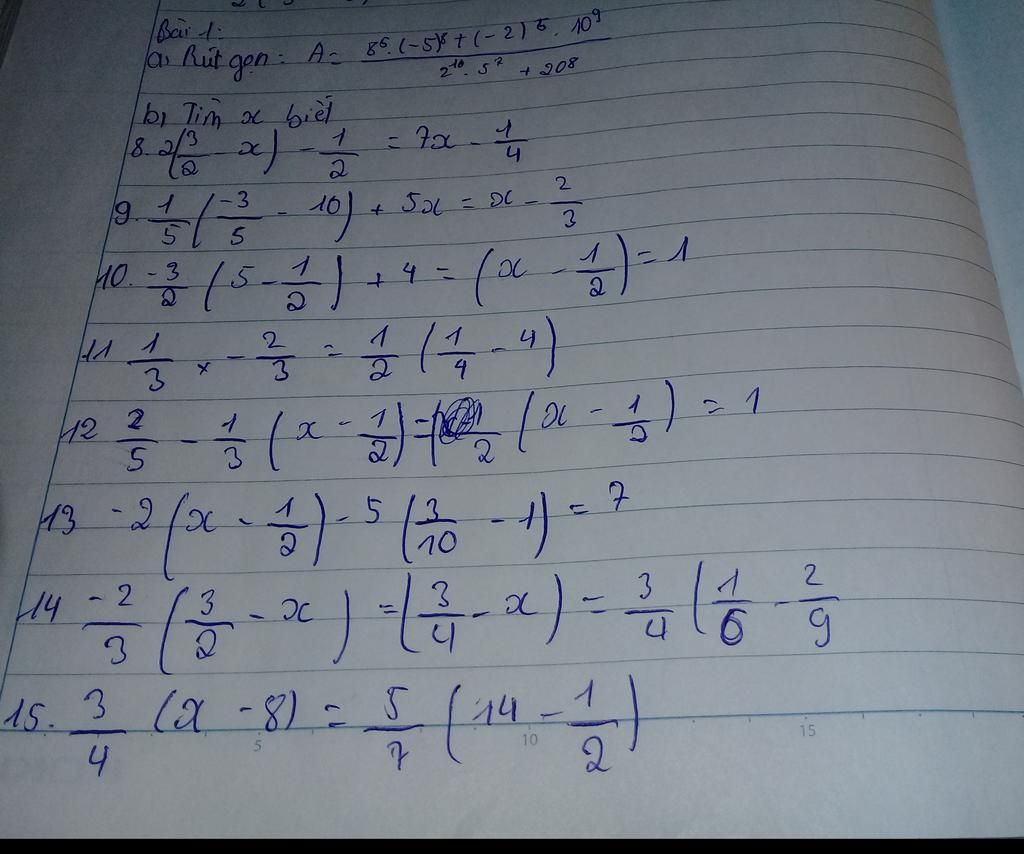 Bài 1:
a, Rút gọn: A = \frac{8^5 \cdot (-5)^8 + (-2)^5 \cdot 10^9}{2^{10} \cdot 5^7 + 20^8}
b, Tìm x biết
8. 2(\frac{3}{2} - x) - \frac{1}{2} = 7x - \frac{1}{4}
9. \frac{1}{5} (\frac{-3}{5} - 10) + 5x = x - \frac{2}{3}
10. \frac{-3}{2} (5 - \frac{1}{2}) + 4 = (x - \frac{1}{2}) = 1
11 \frac{1}{3} x - \frac{2}{3} = \frac{1}{2} (\frac{1}{4} - 4)
12 \frac{2}{5} - \frac{1}{3} (x - \frac{1}{2}) = \frac{1}{2} (x - \frac{1}{2}) = 1
13 -2 (x - \frac{1}{2}) - 5 (\frac{3}{10} - 1) = 7
14 \frac{-2}{3} (\frac{3}{2} - x) = (\frac{3}{4} - x) = \frac{3}{4} (\frac{1}{6} - \frac{2}{9}
15. \frac{3}{4} (x - 8) = \frac{5}{7} (14 - \frac{1}{2})
5 10 15